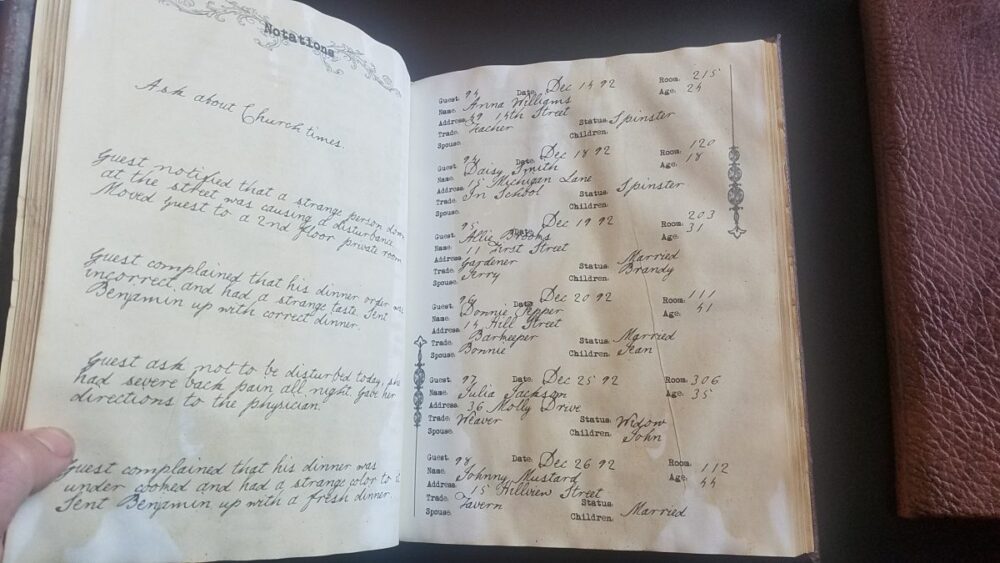 Notations
Ask about
Church times.
Guest notified that a strange person down
at the street was causing a disturbance.
Moved Guest to a 2nd floor private room
Guest complained that his dinner order was
incorrect, and had a strange taste. Sent
Benjamin up with correct dinner.
Guest ask not to be disturbed today, she
had severe back pain all night. Gave her
directions to the physician.
Guest complained that his dinner was
under cooked and had a strange color to it
Sent Benjamin up with a fresh dinner
Guest. 94 Date. Dec 14 92 Room. 215
Name. Anna Williams Age. 24
Address. 49 14th Street
Trade. Teacher Status. Spinster
Spouse. Children.
Guest. 94 Date. Dec 18 92 Room. 120
Name. Daisy Smith Age. 18
Address. 15 Michigan Lane
Trade. In School Status. Spinster
Spouse. Children.
Guest. 95 Date. Dec 19 92 Room. 203
Name. Allie Brooks Age. 31
Address. 11 First Street
Trade. Gardener Status. Married
Spouse. Jerry Children. Brandy
Guest. 96 Date. Dec 20 92 Room. 111
Name. Donnie Pepper Age. 41
Address. 14 Hill Street
Trade. Barkeeper Status. Married
Spouse. Bonnie Children. Jean
Guest. 97 Date. Dec 25 92 Room. 306
Name. Julia Jackson Age. 35
Address. 36 Molly Drive
Trade. Weaver Status. Widow
Spouse. Children. John
Guest. 98 Date. Dec 26 92 Room. 112
Name. Johnny Mustard Age. 44
Address. 15 Hillview Street
Trade. Tavern Status.
Spouse. Children. Married